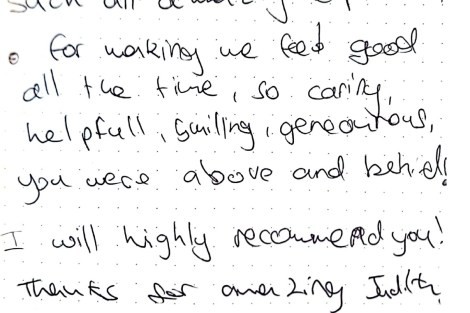 such an amazing
• for making me feel good
all the time, so caring,
helpfull, smiling, geneourous,
you were above and behid!
I will highly recommend you!
Thanks for amazing Judith